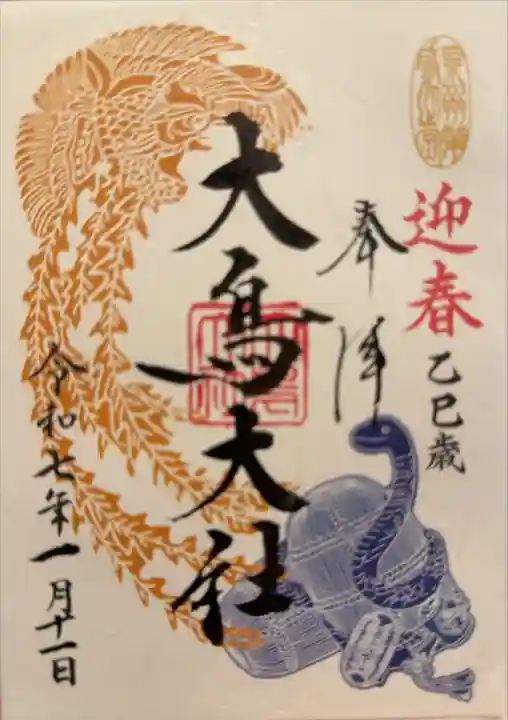 迎春
乙巳歳
奉拝
大鳥大社
令和七年一月十一日